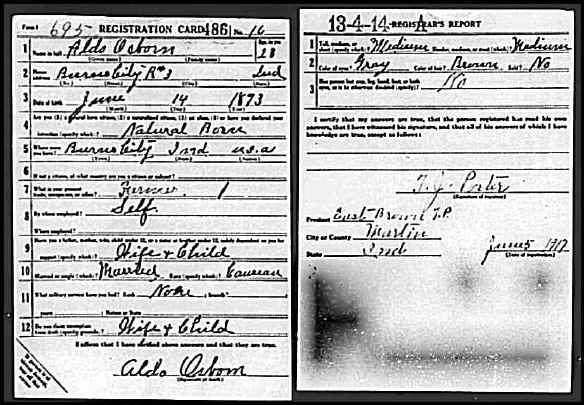 Form 1 695 REGISTRATION CARD 486 No. 16
1 Name in full Aldo Osborn Age, in yrs
(Given name) (Family name) 28
2 Home address Burns City R#3 Ind
(No.) (Street) (City) (State)
3 Date of birth June 14 1873
(Month) (Day) (Year)
4 Are you (1) a natural-born citizen, (2) a naturalized citizen, (3) an alien, (4) or have you declared your
intention (specify which)? Natural Born
5 Where were you born? Burns City Ind U.S.A
(Town) (State) (Nation)
6 If not a citizen, of what country are you a citizen or subject?
7 What is your present trade, occupation, or office? Farmer
8 By whom employed? Self
Where employed?
9 Have you a father, mother, wife, child under 12, or a sister or brother under 12, solely dependent on you for
support (specify which)? Wife & Child
10 Married or single (which)? Married Race (specify which)?
11 What military service have you had? Rank None ; branch
years ; Nation or State
12 Do you claim exemption from draft (specify grounds)? Wife & Child
I affirm that I have verified above answers and that they are true.
Aldo Osborn
(Signature or mark)
13-4-14-A REGISTRAR'S REPORT
1 Tall, medium, or short (specify which)? Medium Slender, medium, or stout (which)? Medium
2 Color of eyes? Gray Color of hair? Brown Bald? No
3 Has person lost arm, leg, hand, foot, or both
eyes, or is he otherwise disabled (specify)? No
I certify that my answers are true, that the person registered has read his own
answers, that I have witnessed his signature, and that all of his answers of which I have
knowledge are true, except as follows:
T. J. Porter
(Signature of registrar)
Precinct East Brown T.P.
City or County Martin
State Ind June 5 1917
(Date of registration)